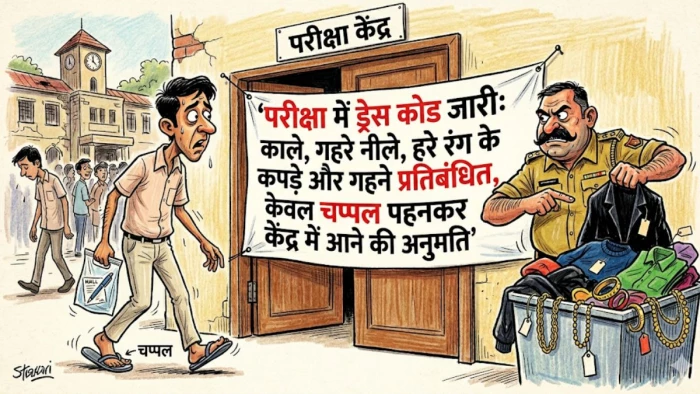 परीक्षा केंद्र
'परीक्षा में ड्रेस कोड जारी:
काले, गहरे नीले, हरे रंग के
कपड़े और गहने प्रतिबंधित,
केवल चप्पल पहनकर
केंद्र में आने की अनुमति'
चप्पल